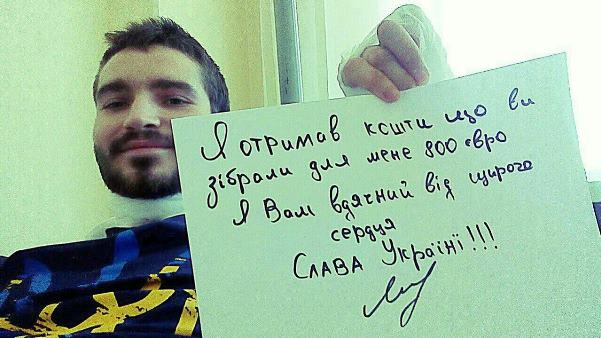 Я отримав кошти що ви
зібрали для мене 800 євро
Я Вам вдячний від щирого
сердця
Слава Україні!!!